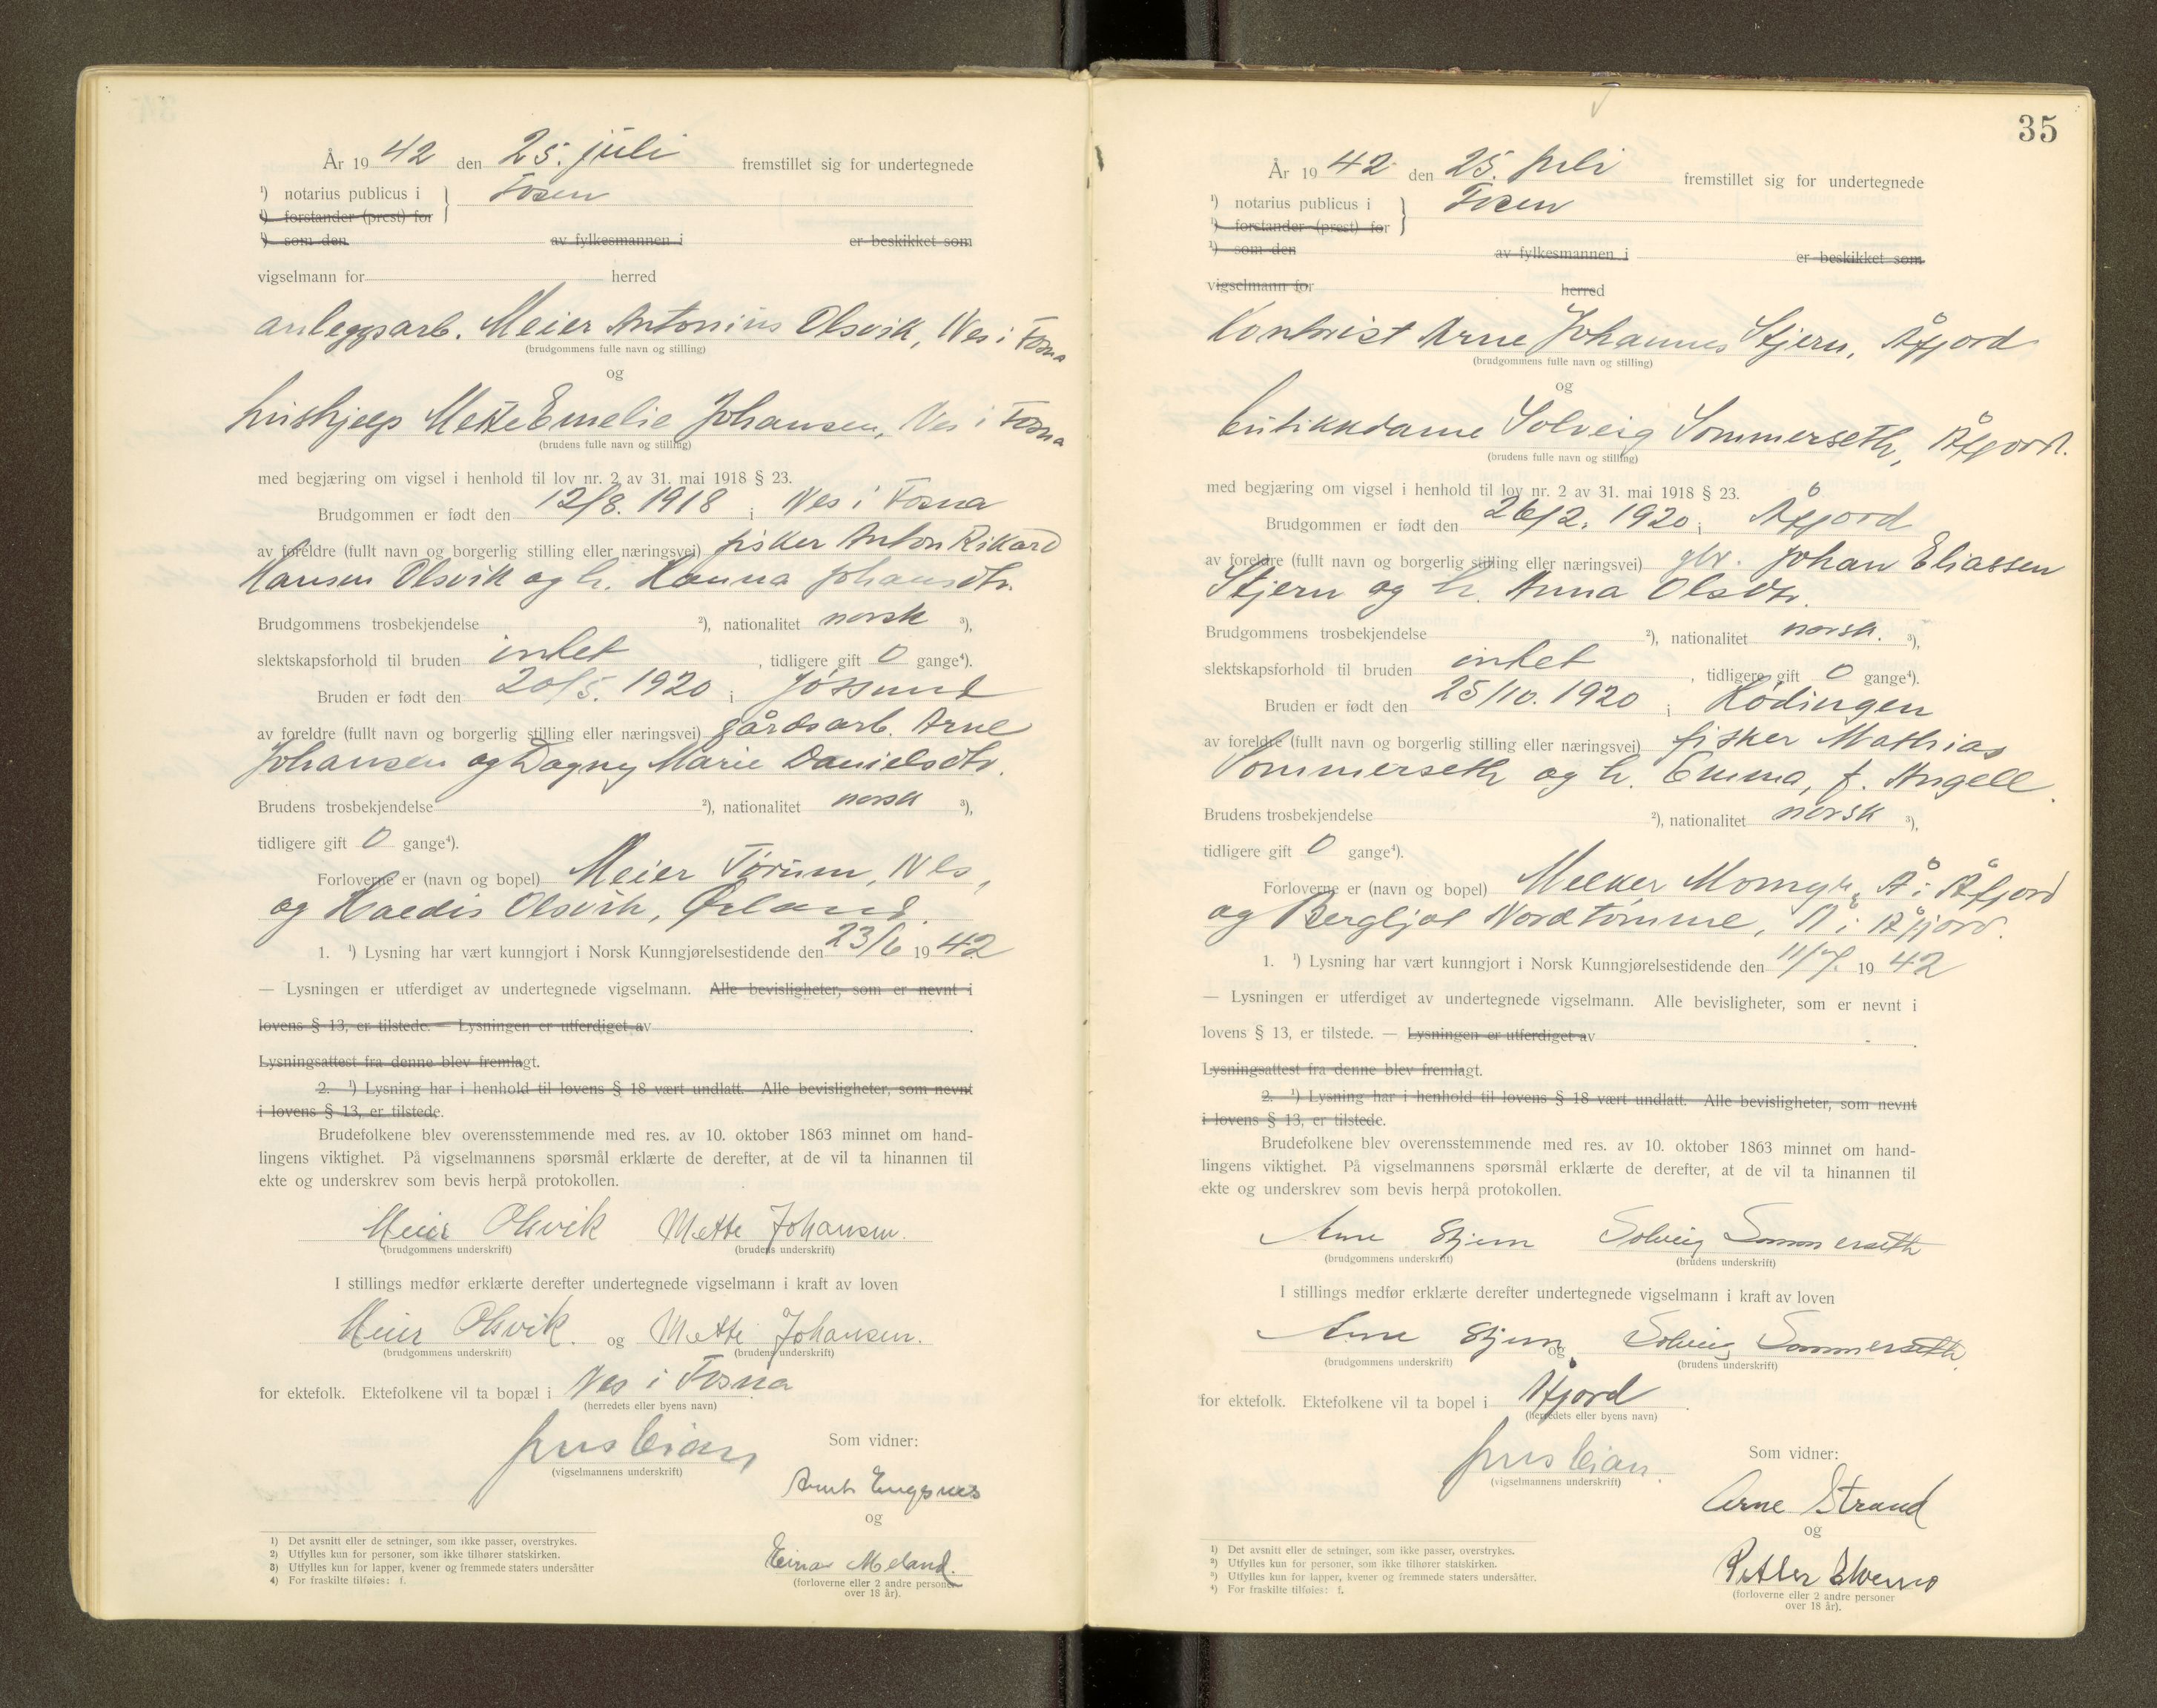 År 19 42 den 25. juli fremstillet sig for undertegnede
¹) notarius publicus i Fosen
¹) forstander (prest) for
¹) som den av fylkesmannen i er beskikket som
vigselmann for herred
anleggsarb. Meier Antonius Olsvik, Nes i Fosna
(brudgommens fulle navn og stilling)
og
hushjelp Mette Emelie Johansen, Nes i Fosna
(brudens fulle navn og stilling)
med begjæring om vigsel i henhold til lov nr. 2 av 31. mai 1918 § 23.
Brudgommen er født den 12/8. 1918 i Nes i Fosna
av foreldre (fullt navn og borgerlig stilling eller næringsvei) fisker Anton Rikard
Hansen Olsvik og h. Hanna Johansdtr.
Brudgommens trosbekjendelse ²), nationalitet norsk ³),
slektskapsforhold til bruden intet , tidligere gift 0 gange⁴).
Bruden er født den 20/5. 1920 i Jössund
av foreldre (fullt navn og borgerlig stilling eller næringsvei) gårdsarb. Arne
Johansen og Dagny Marie Danielsdtr.
Brudens trosbekjendelse ²), nationalitet norsk ³),
tidligere gift 0 gange⁴).
Forloverne er (navn og bopel) Meier Tørum, Nes,
og Haldis Olsvik, Ørland.
1. ¹) Lysning har vært kunngjort i Norsk Kunngjørelsestidende den 23/6 19 42
— Lysningen er utferdiget av undertegnede vigselmann. Alle bevisligheter, som er nevnt i
lovens § 13, er tilstede. — Lysningen er utferdiget av .
Lysningsattest fra denne blev fremlagt.
2. ¹) Lysning har i henhold til lovens § 18 vært undlatt. Alle bevisligheter, som nevnt
i lovens § 13, er tilstede.
Brudefolkene blev overensstemmende med res. av 10. oktober 1863 minnet om hand-
lingens viktighet. På vigselmannens spørsmål erklærte de derefter, at de vil ta hinannen til
ekte og underskrev som bevis herpå protokollen.
Meier Olsvik Mette Johansen.
(brudgommens underskrift) (brudens underskrift)
I stillings medfør erklærte derefter undertegnede vigselmann i kraft av loven
Meier Olsvik. og Mette Johansen.
(brudgommens underskrift) (brudens underskrift)
for ektefolk. Ektefolkene vil ta bopæl i Nes i Fosna
(herredets eller byens navn)
Som vidner:
(vigselmannens underskrift)
Engsnes
og
Einar Meland.
(forloverne eller 2 andre personer
over 18 år).
1) Det avsnitt eller de setninger, som ikke passer, overstrykes.
2) Utfylles kun for personer, som ikke tilhører statskirken.
3) Utfylles kun for lapper, kvener og fremmede staters undersåtter
4) For fraskilte tilføies: f.
35
År 19 42 den 25. juli fremstillet sig for undertegnede
¹) notarius publicus i Fosen
¹) forstander (prest) for
¹) som den av fylkesmannen i er beskikket som
vigselmann for herred
Kontorist Arne Johannes Stjern, Åfjord
(brudgommens fulle navn og stilling)
og
butikkdame Solveig Sommerseth, Åfjord.
(brudens fulle navn og stilling)
med begjæring om vigsel i henhold til lov nr. 2 av 31. mai 1918 § 23.
Brudgommen er født den 26/2. 1920 i Åfjord
av foreldre (fullt navn og borgerlig stilling eller næringsvei) gbr. Johan Eliassen
Stjern og h. Anna Olsdtr.
Brudgommens trosbekjendelse ²), nationalitet norsk. ³),
slektskapsforhold til bruden intet , tidligere gift 0 gange⁴).
Bruden er født den 25/10. 1920 i Lödingen
av foreldre (fullt navn og borgerlig stilling eller næringsvei) fisker Mathias
Sommerseth og h. Emma, f. Angell.
Brudens trosbekjendelse ²), nationalitet norsk ³),
tidligere gift 0 gange⁴).
Forloverne er (navn og bopel) Momyr, Å i Åfjord
og Bergljot Nordtømme, Å i Åfjord.
1. ¹) Lysning har vært kunngjort i Norsk Kunngjørelsestidende den 11/7. 19 42
— Lysningen er utferdiget av undertegnede vigselmann. Alle bevisligheter, som er nevnt i
lovens § 13, er tilstede. — Lysningen er utferdiget av .
Lysningsattest fra denne blev fremlagt.
2. ¹) Lysning har i henhold til lovens § 18 vært undlatt. Alle bevisligheter, som nevnt
i lovens § 13, er tilstede.
Brudefolkene blev overensstemmende med res. av 10. oktober 1863 minnet om hand-
lingens viktighet. På vigselmannens spørsmål erklærte de derefter, at de vil ta hinannen til
ekte og underskrev som bevis herpå protokollen.
Arne Stjern Solveig Sommerseth
(brudgommens underskrift) (brudens underskrift)
I stillings medfør erklærte derefter undertegnede vigselmann i kraft av loven
Arne Stjern og Solveig Sommerseth.
(brudgommens underskrift) (brudens underskrift)
for ektefolk. Ektefolkene vil ta bopel i Åfjord .
(herredets eller byens navn)
Som vidner:
(vigselmannens underskrift)
Arne Strand
og
Petter
(forloverne eller 2 andre personer
over 18 år).
¹) Det avsnitt eller de setninger, som ikke passer, overstrykes.
²) Utfylles kun for personer, som ikke tilhører statskirken.
³) Utfylles kun for lapper, kvener og fremmede staters undersåtter.
⁴) For fraskilte tilføies: f.